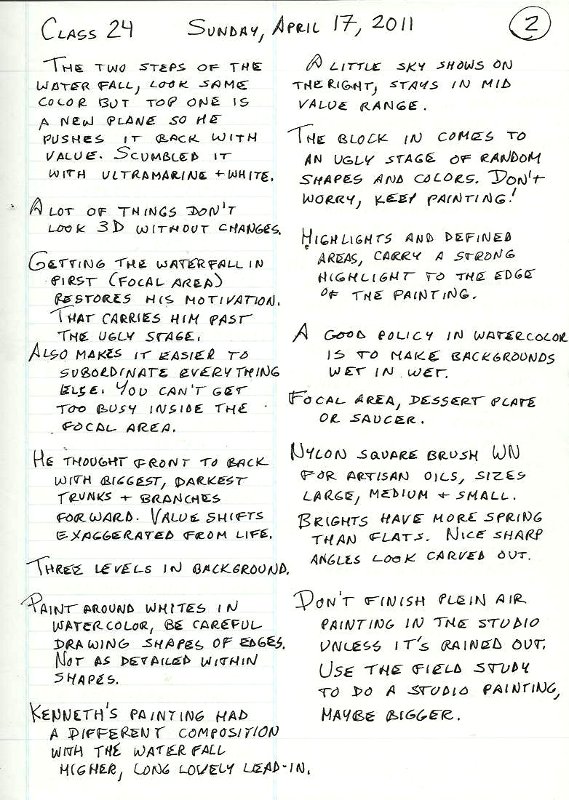 CLASS 24 SUNDAY, APRIL 17, 2011 2
THE TWO STEPS OF THE
WATER FALL, LOOK SAME
COLOR BUT TOP ONE IS
A NEW PLANE SO HE
PUSHES IT BACK WITH
VALUE. SCUMBLED IT
WITH ULTRAMARINE + WHITE.
A LOT OF THINGS DON'T
LOOK 3D WITHOUT CHANGES.
GETTING THE WATERFALL IN
FIRST (FOCAL AREA)
RESTORES HIS MOTIVATION.
THAT CARRIES HIM PAST
THE UGLY STAGE.
ALSO MAKES IT EASIER TO
SUBORDINATE EVERYTHING
ELSE. YOU CAN'T GET
TOO BUSY INSIDE THE
FOCAL AREA.
HE THOUGHT FRONT TO BACK
WITH BIGGEST, DARKEST
TRUNKS + BRANCHES
FORWARD. VALUE SHIFTS
EXAGGERATED FROM LIFE.
THREE LEVELS IN BACKGROUND.
PAINT AROUND WHITES IN
WATERCOLOR, BE CAREFUL
DRAWING SHAPES OF EDGES.
NOT AS DETAILED WITHIN
SHAPES.
KENNETH'S PAINTING HAD
A DIFFERENT COMPOSITION
WITH THE WATERFALL
HIGHER, LONG LOVELY LEAD-IN.
A LITTLE SKY SHOWS ON
THE RIGHT, STAYS IN MID
VALUE RANGE.
THE BLOCK IN COMES TO
AN UGLY STAGE OF RANDOM
SHAPES AND COLORS. DON'T
WORRY, KEEP PAINTING!
HIGHLIGHTS AND DEFINED
AREAS, CARRY A STRONG
HIGHLIGHT TO THE EDGE
OF THE PAINTING.
A GOOD POLICY IN WATERCOLOR
IS TO MAKE BACKGROUNDS
WET IN WET.
FOCAL AREA, DESSERT PLATE
OR SAUCER.
NYLON SQUARE BRUSH WN
FOR ARTISAN OILS, SIZES
LARGE, MEDIUM + SMALL.
BRIGHTS HAVE MORE SPRING
THAN FLATS. NICE SHARP
ANGLES LOOK CARVED OUT.
DON'T FINISH PLEIN AIR
PAINTING IN THE STUDIO
UNLESS IT'S RAINED OUT.
USE THE FIELD STUDY
TO DO A STUDIO PAINTING,
MAYBE BIGGER.